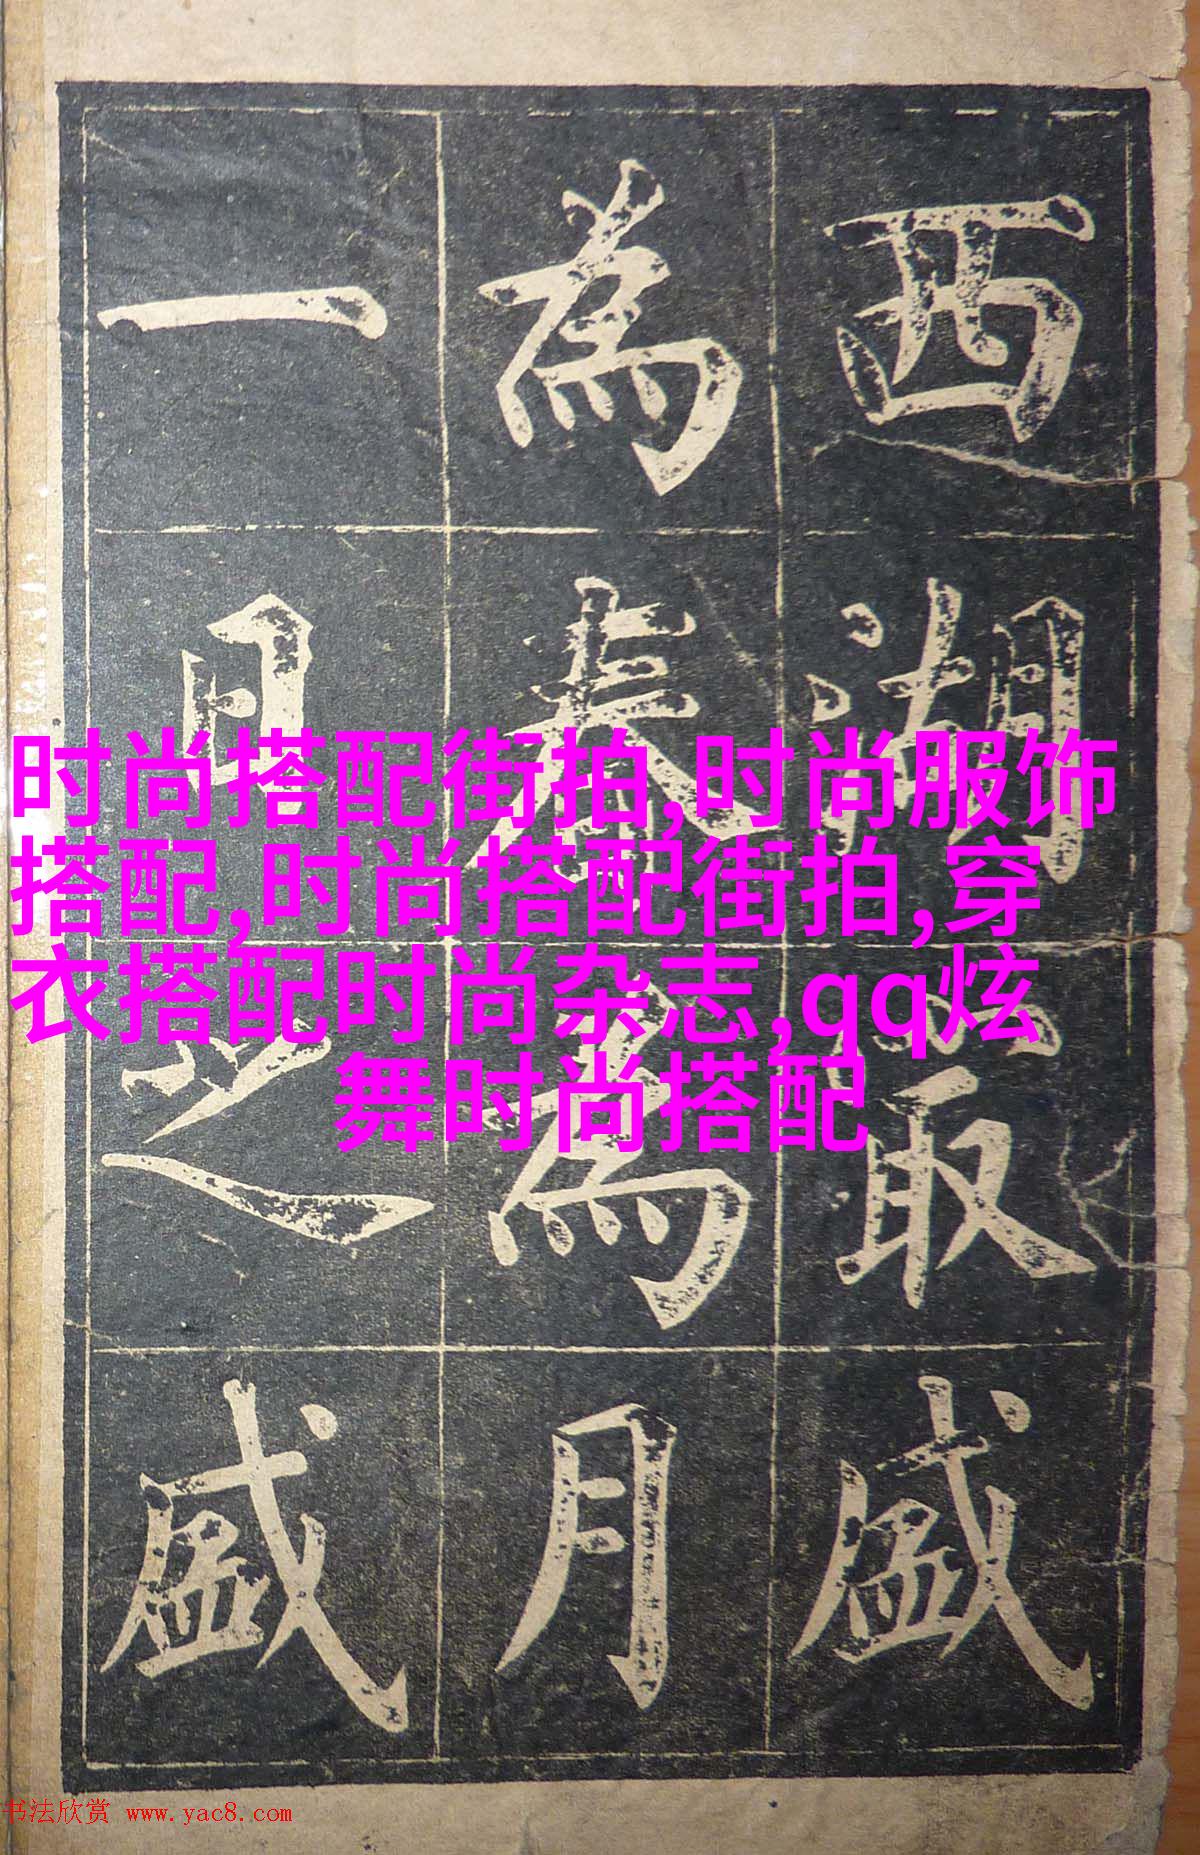 西湖最盛
為春為月
一日之盛
时尚搭配街拍,时尚服饰
搭配,时尚搭配街拍,穿
衣搭配时尚杂志,qq炫
舞时尚搭配
书法欣赏 www.yac8.com